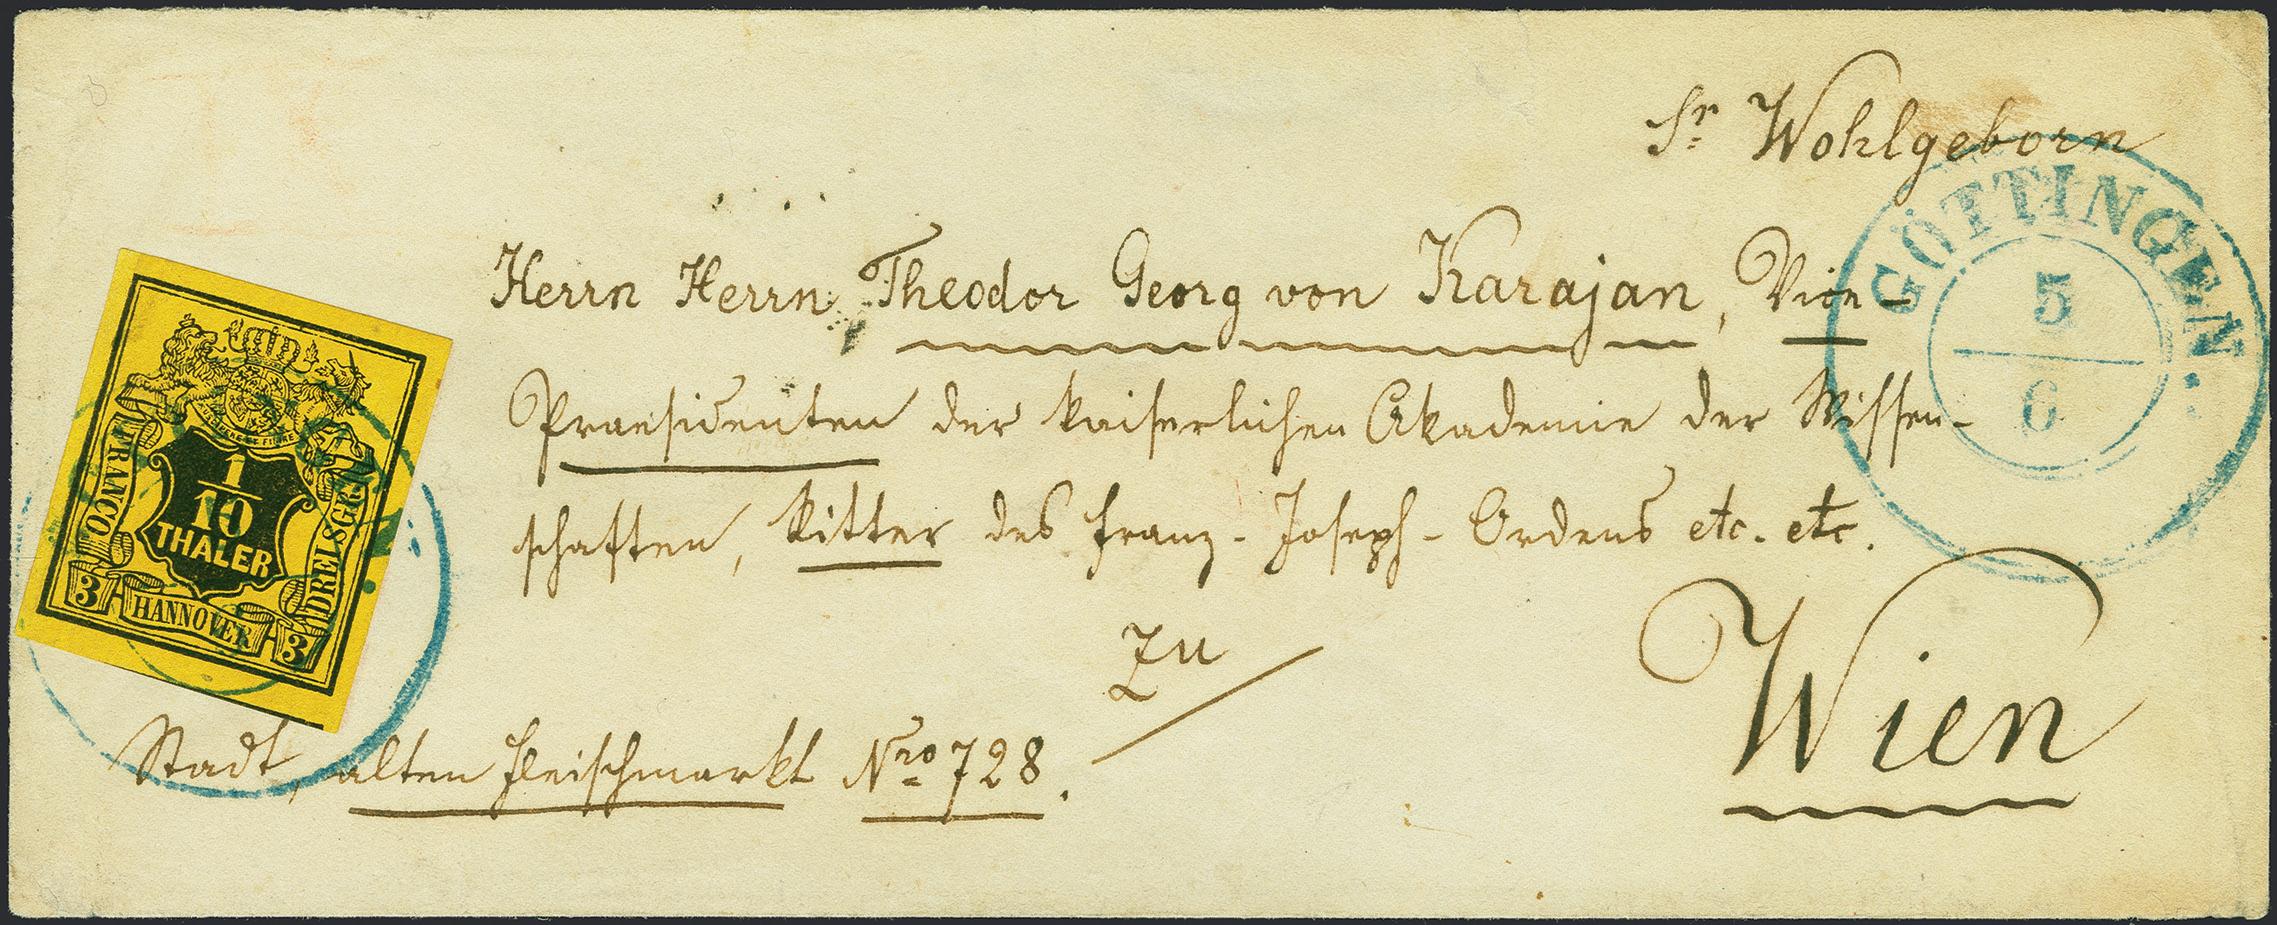 Sr Wohlgeborn
Herrn Herrn Theodor Georg von Karajan, Vice-
Praesidenten der kaiserlichen Akademie der Wissen-
schaften, Ritter des Franz-Joseph-Ordens etc. etc.
Zu
Wien
Stadt, alten Fleischmarkt Nro 728.
GÖTTINGEN.
5
6
FRANCO
1
10
THALER
DREI SGR.
3
HANNOVER
3